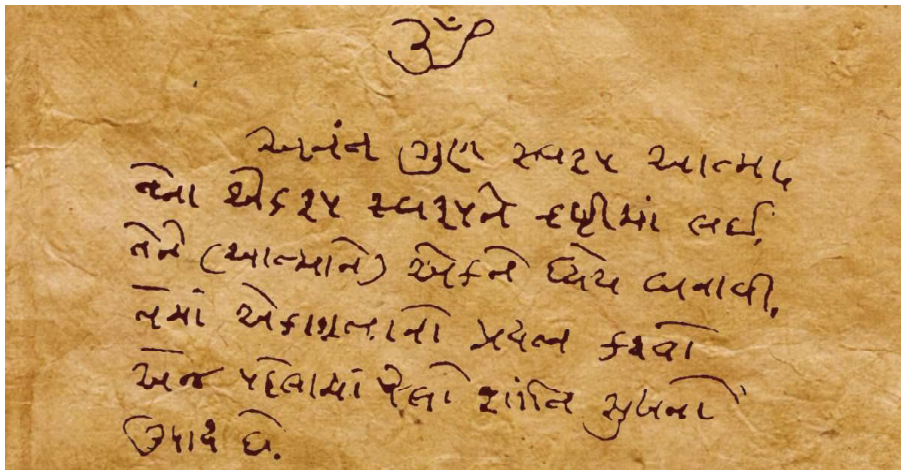 ૐ
અનંત ગુણ સ્વરૂપ આત્મા,
તેના એકરૂપ સ્વરૂપને દૃષ્ટીમાં લઈ,
તેને (આત્માને) એકને ધ્યેય બનાવી,
તેમાં એકાગ્રતાનો પ્રયત્ન કરવો
એજ પહેલામાં પેલો શાંતિ સુખનો
ઉપાય છે.